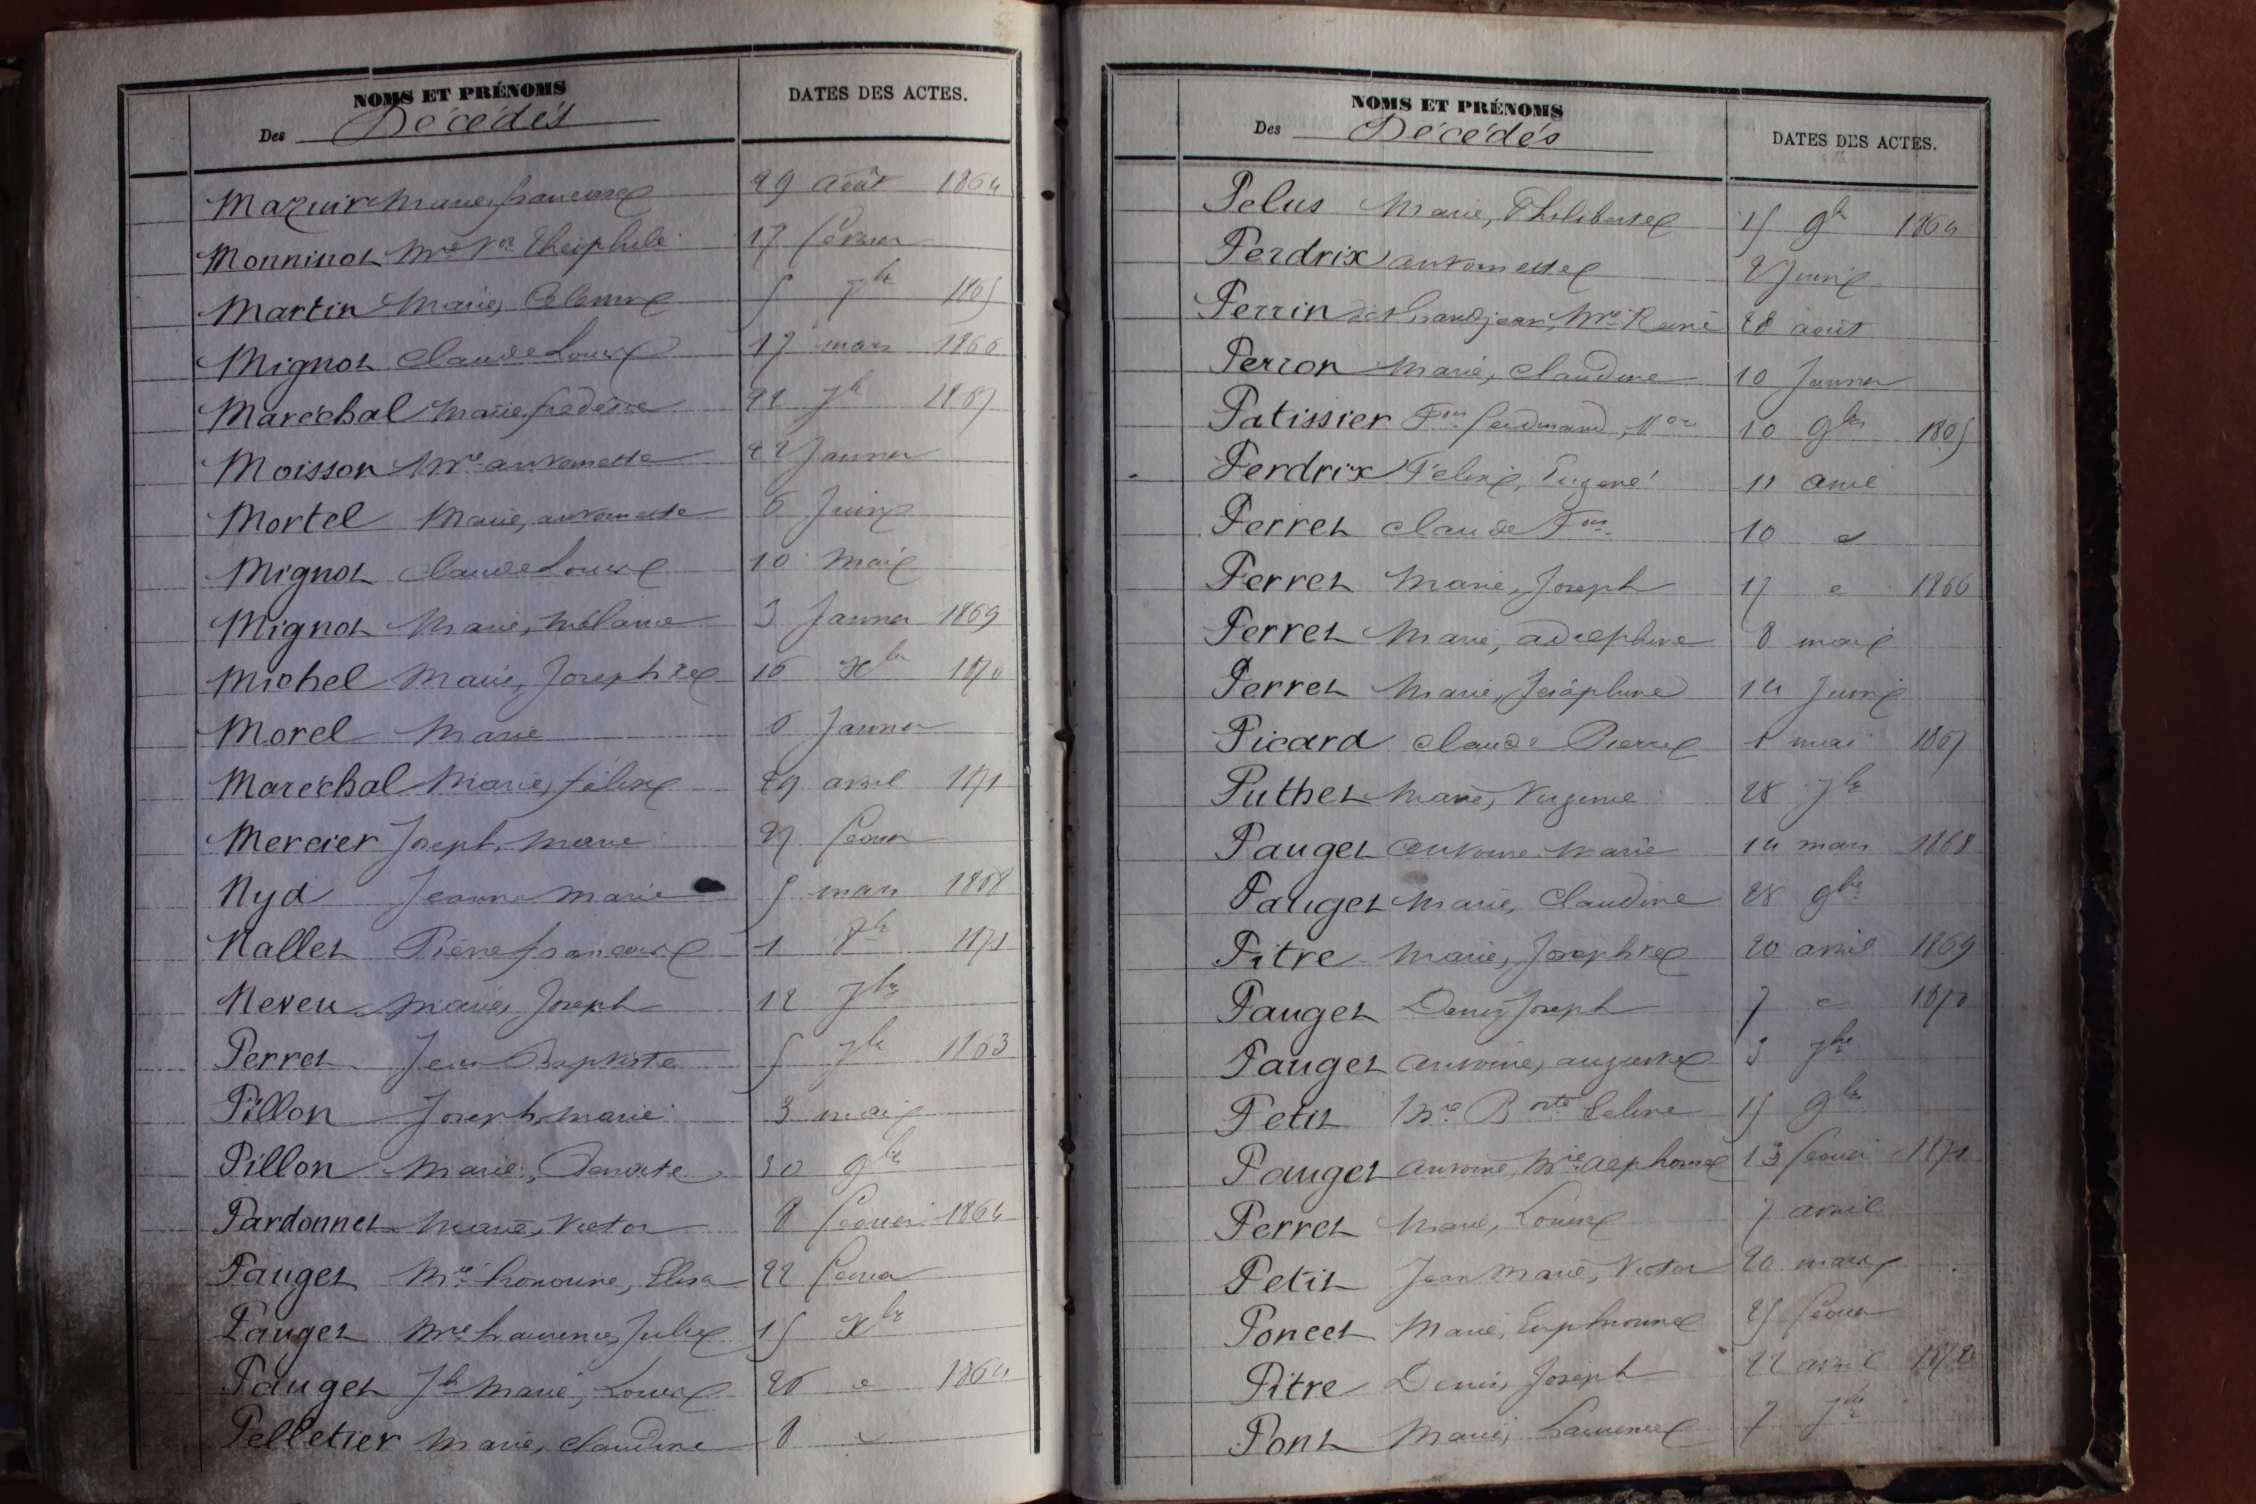 NOMS ET PRÉNOMS
Des Décédés
DATES DES ACTES.
Mazuir Marie francoise 29 août 1864
Monninot Mie Théophile 17 février
Martin Marie, Celenie 5 7bre 1865
Mignot Claude Louis 17 mars 1866
Maréchal Marie frédéric 22 7bre 1867
Moisson Mie antoinette 22 Janvier
Mortel Marie, antoinette 6 Juin
Mignot Claude Louis 10 Mai
Mignot Marie, Mélanie 3 Janvier 1869
Michel Marie, Joseph 16 Xbre 1870
Morel Marie 6 Janvier
Maréchal Marie, félix 29 avril 1871
Mercier Joseph, Marie 27 février
Nyd Jeanne Marie 5 mars 1868
Nallet Pierre francois 1 8bre 1871
Neveu Marie, Joseph 12 7bre
Perret Jean Baptiste 5 7bre 1863
Pillon Joseph, Marie 3 mai
Pillon Marie, Benoite 30 9bre
Pardonnet Marie, Victor 8 février 1864
Pauget Mie honorine, Elisa 22 février
Pauget Mie Laurence, Julie 15 Xbre
Pauget Jh Marie, Louis 26 d 1864
Pelletier Marie, Claudine 8 d
NOMS ET PRÉNOMS
Des Décédés
DATES DES ACTES.
Pelus Marie, Philiberte 15 9bre 1864
Perdrix antoinette 2 Juin
Perrin dit Grandjean, Mie René 28 août
Perron Marie, Claudine 10 Janvier
Patissier Fois ferdinand, Vor 10 9bre 1865
Perdrix Félix, Eugène 11 avril
Perret Claude Fois 10 d
Perret Marie, Joseph 17 d 1866
Perret Marie, adelphine 8 mai
Perret Marie, Séraphine 14 Juin
Picard Claude Pierre 1 mai 1867
Puthet Marie, Virginie 28 7bre
Pauget Antoine Marie 14 mars 1868
Pauget Marie, Claudine 28 9bre
Pitre Marie, Joseph 20 avril 1869
Pauget Denis Joseph 7 d 1870
Pauget Antoine, auguste 3 7bre
Petit Mie Celine 15 9bre
Pauget antoine, Mie alphonse 13 février 1871
Perret Marie, Louise 7 avril
Petit Jean Marie, Victor 20 mai
Poncet Marie, Euphrosine 25 février
Pitre Denis, Joseph 22 avril 1872
Pont Marie, Laurence 7 7bre